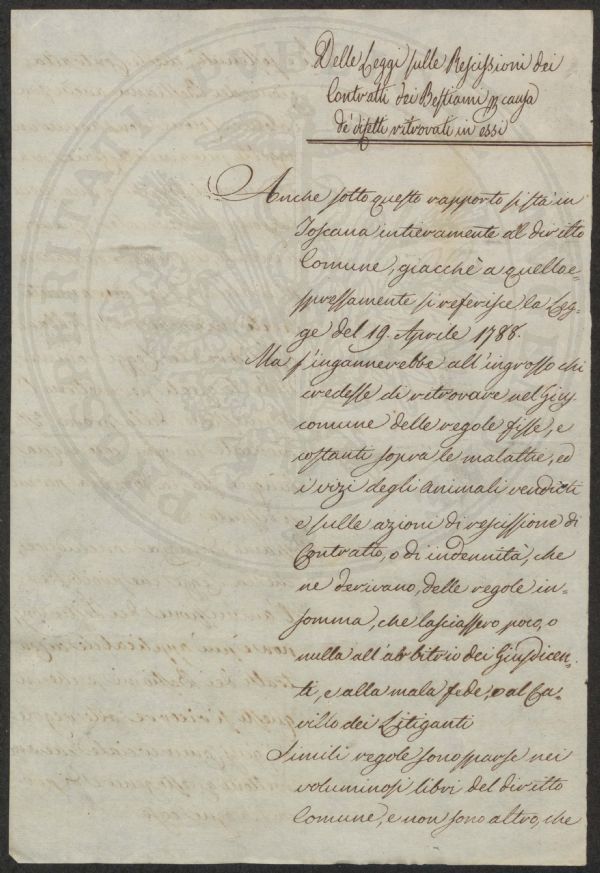 Delle Leggi sulle Rescissioni dei
Contratti dei Bestiami p causa
de' difetti ritrovati in essi
Anche sotto questo rapporto si stà in
Toscana intieramente al diritto
Comune, giacchè a quello e=
spressamente si referisce la Leg=
ge del 19. Aprile 1788.
Ma s'ingannerebbe all'ingrosso chi
credesse di ritrovare nel Gius
comune delle regole fisse, e
costanti sopra le malattie, ed
i vizi degli animali venduti
e sulle azioni di rescissione di
Contratto, o di indennità, che
ne derivano, delle regole in=
somma, che lasciassero poco, o
nulla all'arbitrio dei Giusdicen-
ti, e alla mala fede, o al Ca-
villo dei Litiganti
Simili regole sono sparse nei
voluminosi libri del diritto
Comune, e non sono altro, che